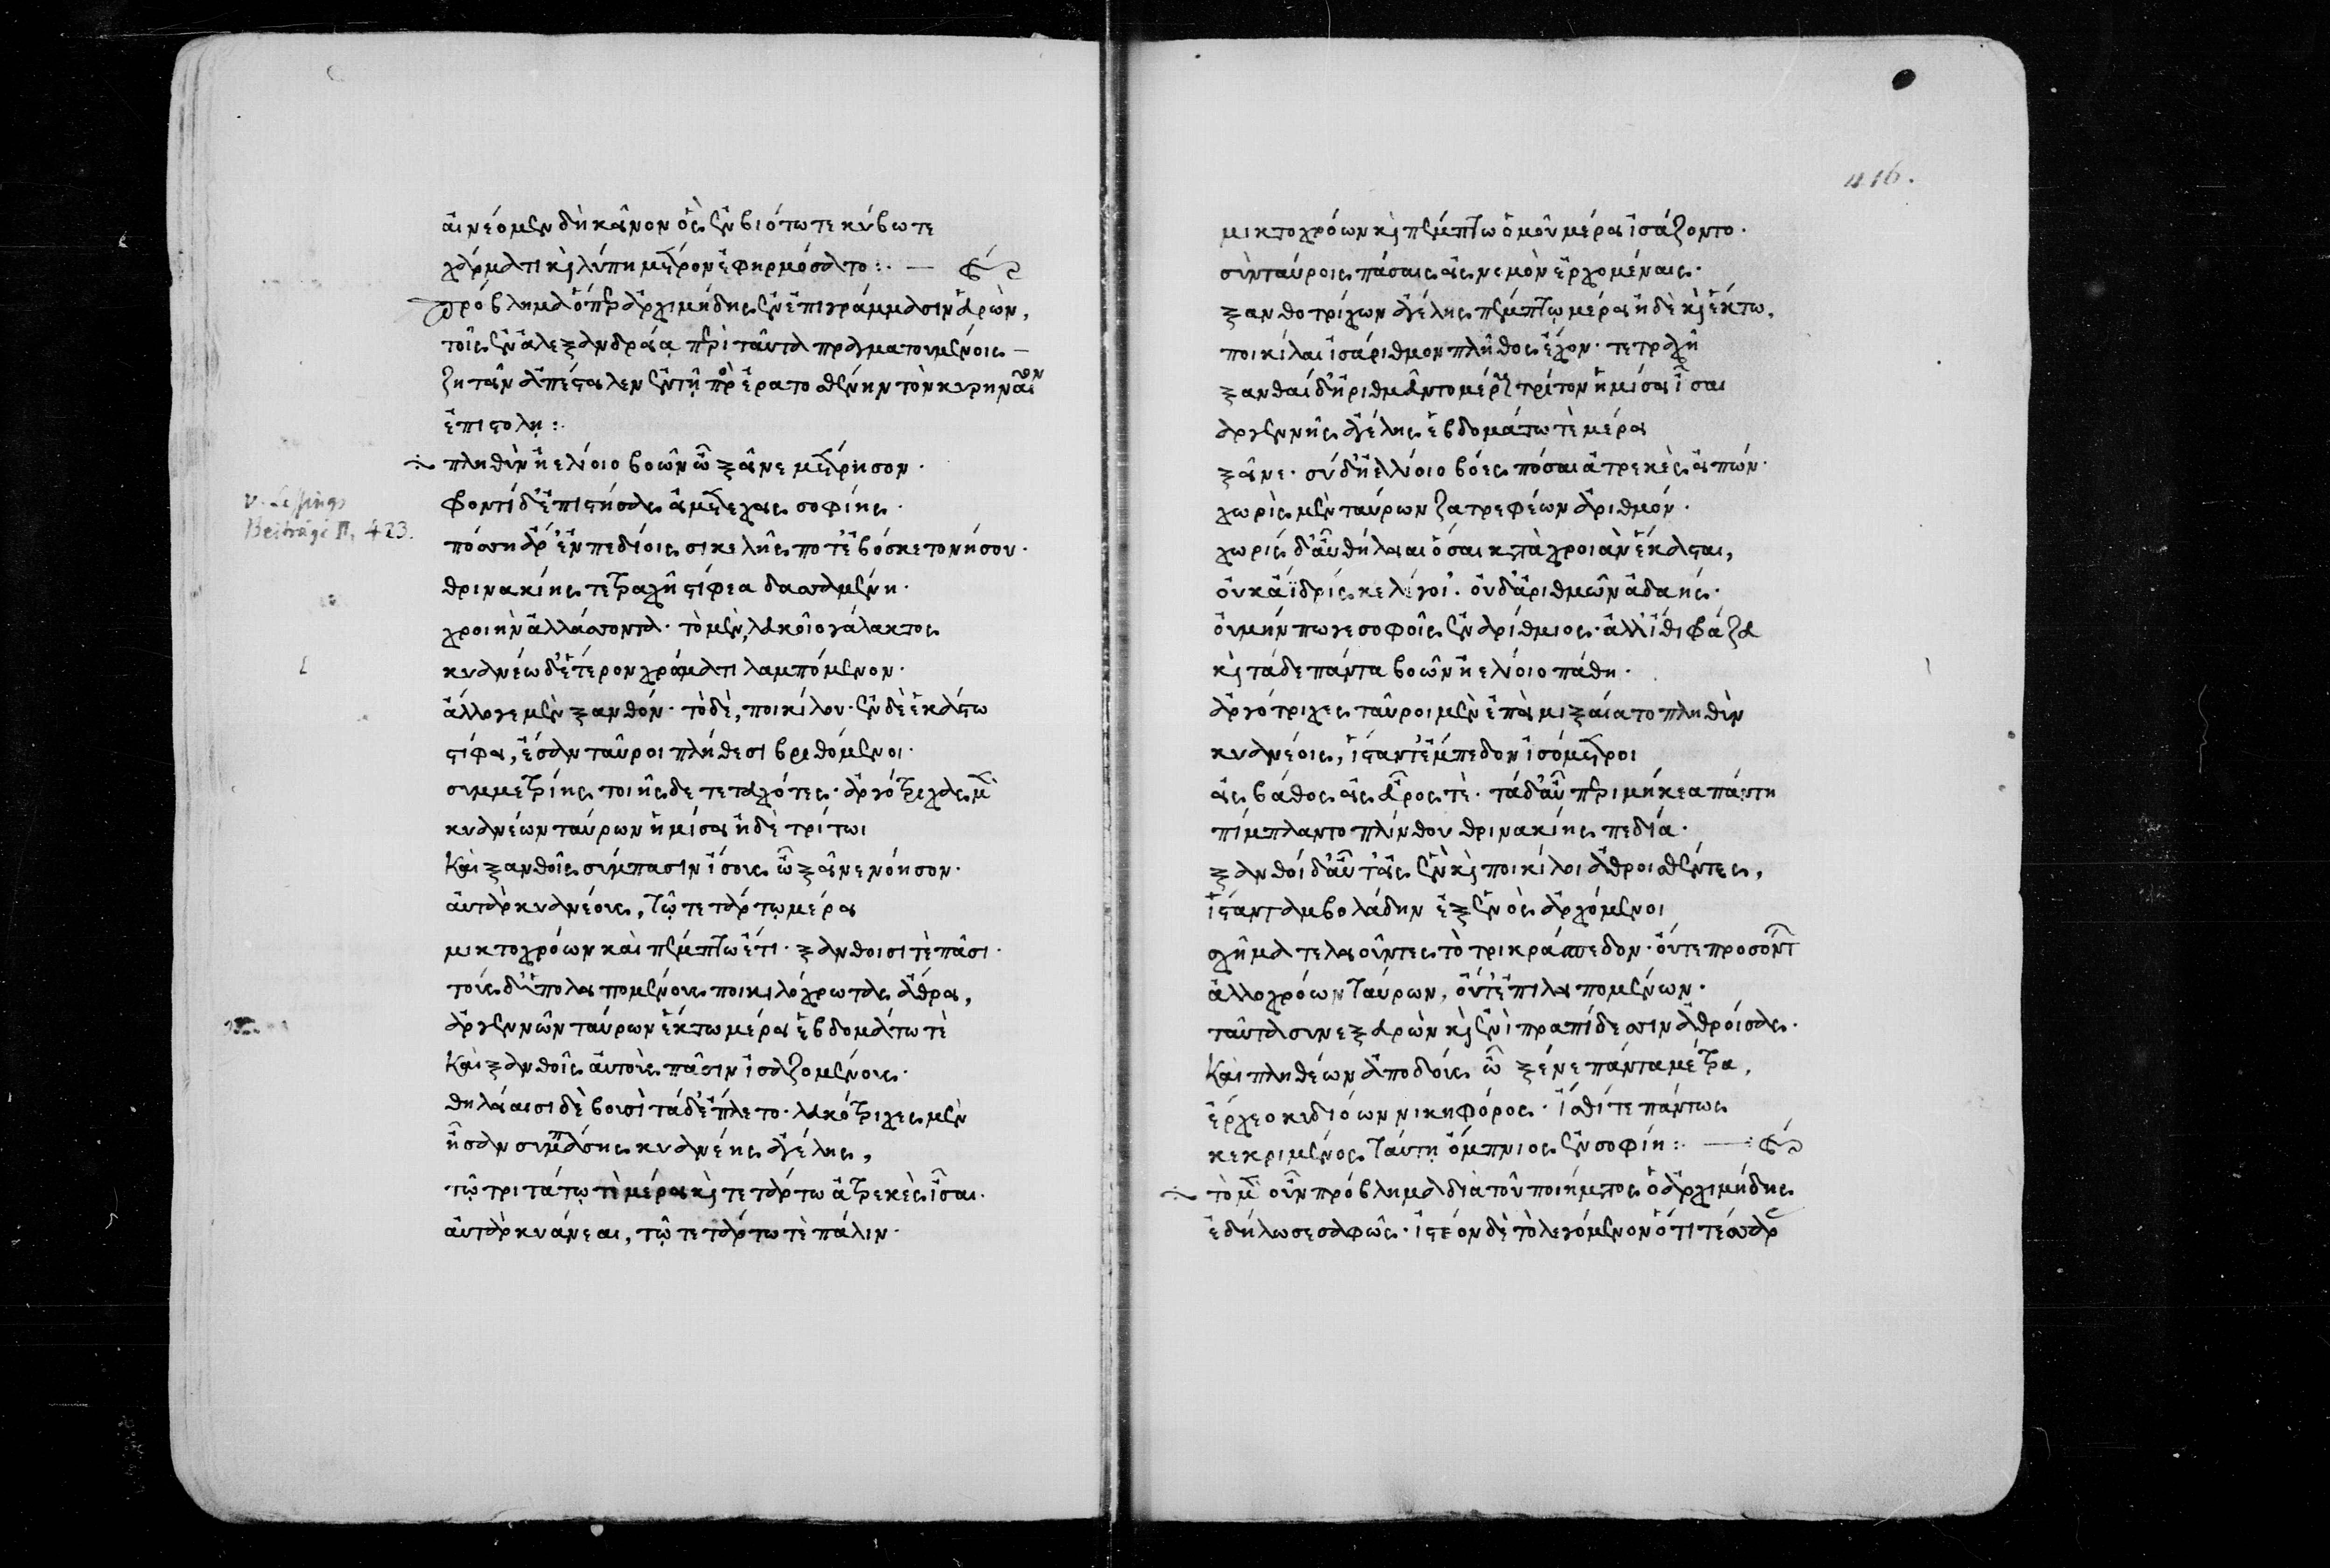 αἰνέομεν δὴ κεῖνον ὃς ἐν βιότω τε κύβω τε
χάρματι κ(αὶ) λύπη μέτρον ἐφηρμόσατο :. —
πρόβλημα ὅπερ ἀρχιμήδης ἐν ἐπιγράμμασιν εὑρὼν,
τοῖς ἐν ἀλεξανδρείᾳ περὶ ταῦτα πραγματουμένοις —
ζητεῖν ἀπέστειλεν ἐν τῇ πρὸ(ς) ἐρατοσθένην τὸν κυρηναῖον
ἐπιστολῇ :.
πληθὺν ἠελίοιο βοῶν ὦ ξεῖνε μέτρησον·
φροντίδ' ἐπιστήσας εἰ μετέχεις σοφίης·
πόσση ἄρ' ἐν πεδίοις σικελῆς ποτ' ἐβόσκετο νήσου·
θρινακίης τετραχῆ στίφεα δασσαμένη·
χροιὴν ἀλλάσσοντα· τὸ μὲν, λευκοῖο γάλακτος
κυανέω δ' ἕτερον χρώματι λαμπόμενον·
ἄλλο γε μὲν ξανθόν· τὸ δὲ, ποικίλον· ἐν δὲ ἑκάστω
στίφει, ἔσαν ταῦροι πλήθεσι βριθόμενοι·
συμμετρίης τοιῆσδε τετευχότες· ἀργότριχας μὲν
κυανέων ταύρων ἡμίσει ἠδὲ τρίτωι
Καὶ ξανθοῖς σύμπασιν ἴσους ὦ ξεῖνε νόησον·
αὐτὰρ κυανέους, τῷ τετάρτῳ μέρει
μικτοχρόων καὶ πέμπτω ἔτι· ξανθοισί τε πᾶσι·
τοὺς δ' ὑπολειπομένους ποικιλόχρωτας ἄθρει,
ἀργεννῶν ταύρων ἕκτω μέρει ἑβδομάτω τὲ
Καὶ ξανθοῖς αὐτοὺς πᾶσιν ἰσαζομένους·
θηλείαισι δὲ βουσὶ τάδ' ἔπλετο· λευκότριχες μὲν
ἦσαν συμπάσης κυανέης ἀγέλης,
τῷ τριτάτῳ τὲ μέρει κ(αὶ) τετάρτω ἀτρεκὲς ἶσαι·
αὐτὰρ κυάνεαι, τῷ τετάρτω τὲ πάλιν·
v. Lessings
Beiträge II, 423.
416.
μικτοχρόων κ(αὶ) πέμπτω ὁμοῦ μέρει ἰσάζοντο·
σὺν ταύροις πάσαις εἰς νομὸν ἐρχομέναις·
ξανθοτρίχων ἀγέλης πέμπτῳ μέρει ἠδὲ κ(αὶ) ἕκτω,
ποικίλαι ἰσάριθμον πλῆθος ἔχον· τετραχῆ
ξανθαὶ δ' ἠριθμεῦντο μέρους τρίτου ἡμίσει ἶσαι
ἀργεννῆς ἀγέλης ἑβδομάτω τὲ μέρει
ξεῖνε· σὺ δ' ἠελίοιο βόες πόσαι ἀτρεκὲς εἰπών·
χωρὶς μὲν ταύρων ζατρεφέων ἀριθμόν·
χωρὶς δ' αὖ θήλειαι ὅσαι κατὰ χροιὰν ἕκασται,
οὐκ ἄϊδρίς κε λέγοι'· οὐδ' ἀριθμῶν ἀδαής·
οὐ μήν πω γε σοφοῖς ἐν ἀρίθμιος· ἀλλ' ἴθι φράζευ
κ(αὶ) τάδε πάντα βοῶν ἠελίοιο πάθη·
ἀργότριχες ταῦροι μὲν ἐπεὶ μιξαίατο πληθὺν
κυανέοις, ἵσταντ' ἔμπεδον ἰσόμετροι
εἰς βάθος εἰς εὖρος τὲ· τὰ δ' αὖ περιμήκεα πάντη
πίμπλαντο πλίνθου θρινακίης πεδία·
ξανθοὶ δ' αὖτ' εἰς ἓν κ(αὶ) ποικίλοι ἀθροισθέντες,
ἵσταντ' ἀμβολάδην ἐξ ἑνὸς ἀρχόμενοι
σχῆμα τελειοῦντες τὸ τρικράσπεδον· οὔτε προσόντ(ων)
ἀλλοχρόων ταύρων, οὔτ' ἐπιλειπομένων·
ταῦτα συνεξευρὼν κ(αὶ) ἐνὶ πραπίδεσσιν ἀθροίσας·
Καὶ πληθέων ἀποδοὺς ὦ ξένε πάντα μέτρα,
ἔρχεο κυδιόων νικηφόρος· ἴσθί τε πάντως
κεκριμένος ταύτῃ ὄμπνιος ἐν σοφίη :. —
τὸ μ(ὲν) οὖν πρόβλημα διὰ τοῦ ποιήματος ὁ ἀρχιμήδης
ἐδήλωσε σαφῶς· ἰστέον δὲ τὸ λεγόμενον ὅτι τέσσαρ(ας)